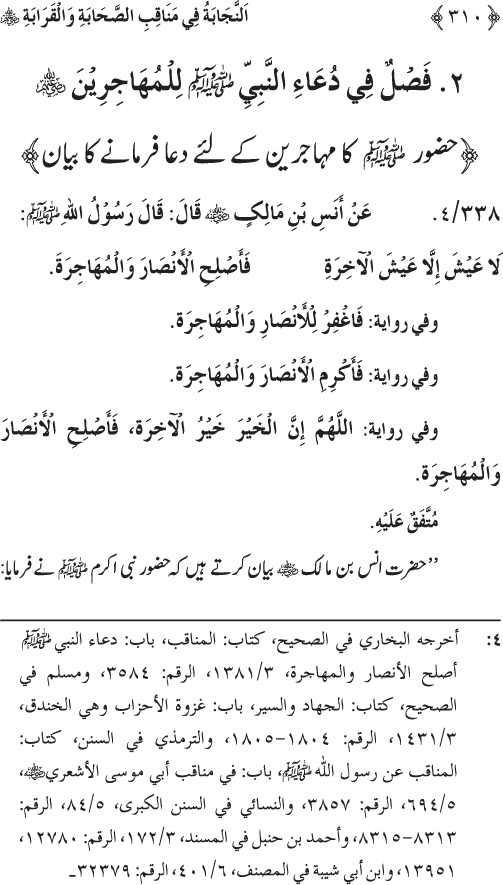 ﴿ ٣١٠ ﴾ اَلنَّجَابَةُ فِي مَنَاقِبِ الصَّحَابَةِ وَالْقَرَابَةِ ﷺ
٢. فَصْلٌ فِي دُعَاءِ النَّبِيِّ ﷺ لِلْمُهَاجِرِيْنَ ﷺ
﴿حضور ﷺ کا مہاجرین کے لئے دعا فرمانے کا بیان﴾
٤/٣٣٨. عَنْ أَنَسِ بْنِ مَالِكٍ ﷺ قَالَ: قَالَ رَسُوْلُ اللهِ ﷺ:
لَا عَيْشَ إِلَّا عَيْشَ الْآخِرَةِ فَأَصْلِحِ الْأَنْصَارَ وَالْمُهَاجِرَةَ.
وفي رواية: فَاغْفِرْ لِلْأَنْصَارِ وَالْمُهَاجِرَة.
وفي رواية: فَأَكْرِمِ الْأَنْصَارَ وَالْمُهَاجِرَة.
وفي رواية: اللَّهُمَّ إِنَّ الْخَيْرَ خَيْرُ الْآخِرَة، فَأَصْلِحِ الْأَنْصَارَ
وَالْمُهَاجِرَة.
مُتَّفَقٌ عَلَيْهِ.
”حضرت انس بن مالک بیان کرتے ہیں کہ حضور نبی اکرم ﷺ نے فرمایا:
٤: أخرجه البخاري في الصحيح، كتاب: المناقب، باب: دعاء النبي ﷺ
أصلح الأنصار والمهاجرة، ١٣٨١/٣، الرقم: ٣٥٨٤، ومسلم في
الصحيح، كتاب: الجهاد والسير، باب: غزوة الأحزاب وهي الخندق،
١٤٣١/٣، الرقم: ١٨٠٤-١٨٠٥، والترمذي في السنن، كتاب:
المناقب عن رسول الله ﷺ، باب: في مناقب أبي موسى الأشعري،
٦٩٤/٥، الرقم: ٣٨٥٧، والنسائي في السنن الكبرى، ٨٤/٥، الرقم:
٨٣١٣-٨٣١٥، وأحمد بن حنبل في المسند، ١٧٢/٣، الرقم: ١٢٧٨٠،
١٣٩٥١، وابن أبي شيبة في المصنف، ٤٠١/٦، الرقم: ٣٢٣٧٩ـ